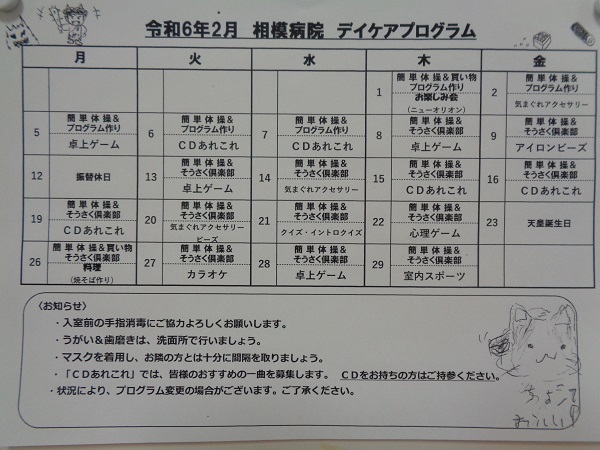 令和6年2月 相模病院 デイケアプログラム
月 火 水 木 金
1
簡単体操&買い物
プログラム作り
お楽しみ会
(ニューオリオン)
2
簡単体操&
プログラム作り
気まぐれアクセサリー
5
簡単体操&
プログラム作り
卓上ゲーム
6
簡単体操&
プログラム作り
CDあれこれ
7
簡単体操&
プログラム作り
CDあれこれ
8
簡単体操&
そうさく倶楽部
卓上ゲーム
9
簡単体操&
そうさく倶楽部
アイロンビーズ
12
振替休日
13
簡単体操&
そうさく倶楽部
卓上ゲーム
14
簡単体操&
そうさく倶楽部
気まぐれアクセサリー
15
簡単体操&
そうさく倶楽部
CDあれこれ
16
簡単体操&
そうさく倶楽部
CDあれこれ
19
簡単体操&
そうさく倶楽部
CDあれこれ
20
簡単体操&
そうさく倶楽部
気まぐれアクセサリー
ビーズ
21
簡単体操&
そうさく倶楽部
クイズ・イントロクイズ
22
簡単体操&
そうさく倶楽部
心理ゲーム
23
天皇誕生日
26
簡単体操&買い物
そうさく倶楽部
料理
(焼そば作り)
27
簡単体操&
そうさく倶楽部
カラオケ
28
簡単体操&
そうさく倶楽部
卓上ゲーム
29
簡単体操&
そうさく倶楽部
室内スポーツ
〈お知らせ〉
・入室前の手指消毒にご協力よろしくお願いします。
・うがい&歯磨きは、洗面所で行いましょう。
・マスクを着用し、お隣の方とは十分に間隔を取りましょう。
・「CDあれこれ」では、皆様のおすすめの一曲を募集します。 CDをお持ちの方はご持参ください。
・状況により、プログラム変更の場合がございます。ご了承ください。